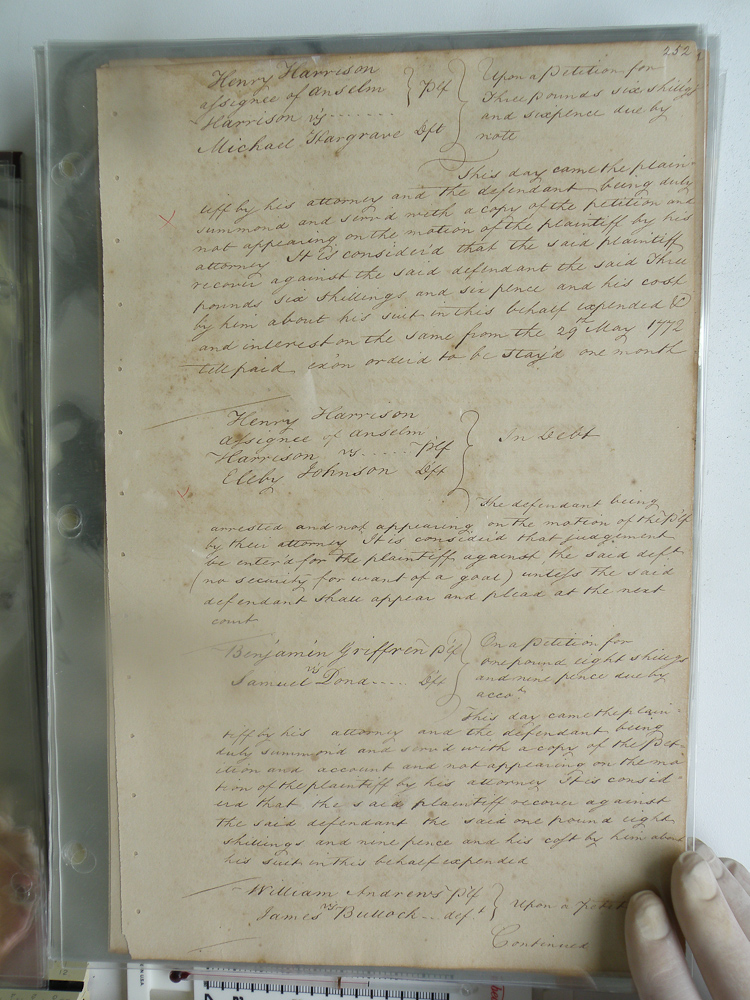 252
Henry Harrison
assignee of Anselm } Plf
Harrison vs .......
Michael Hargrave Dft
Upon a Petition for
Three pounds six shillings
and sixpence due by
note
This day came the plain-
tiff by his attorney and the defendant being duly
summond and serv'd with a copy of the petition and
not appearing on the motion of the plaintiff by his
attorney It is consider'd that the said plaintiff
recover against the said defendant the said Three
pounds six shillings and six pence and his cost
by him about his suit in this behalf expended &
and interest on the same from the 29th May 1772
till paid exon order'd to be stay'd one month
Henry Harrison
assignee of Anselm
Harrison vs ..... Plf
Elleby Johnson Dft
In Debt
The defendant being
arrested and not appearing on the motion of the Plf
by their attorney It is consider'd that judgement
be enter'd for the plaintiff against the said deft
(no security for want of a goal) unless the said
defendant shall appear and plead at the next
court
Benjamin Griffren Plf
vs
Samuel Dond .... Dft
On a Petition for
one pound eight shillings
and nine pence due by
accot
This day came the plain-
tiff by his attorney and the defendant being
duly summon'd and serv'd with a copy of the Pet-
ition and account and not appearing on the mo
tion of the plaintiff by his attorney It is consid-
erd that the said plaintiff recover against
the said defendant the said one pound eight
shillings and nine pence and his cost by him about
his suit in this behalf expended
William Andrews Plf
vs
James Bullock .. deft
Upon a Petit
Continued